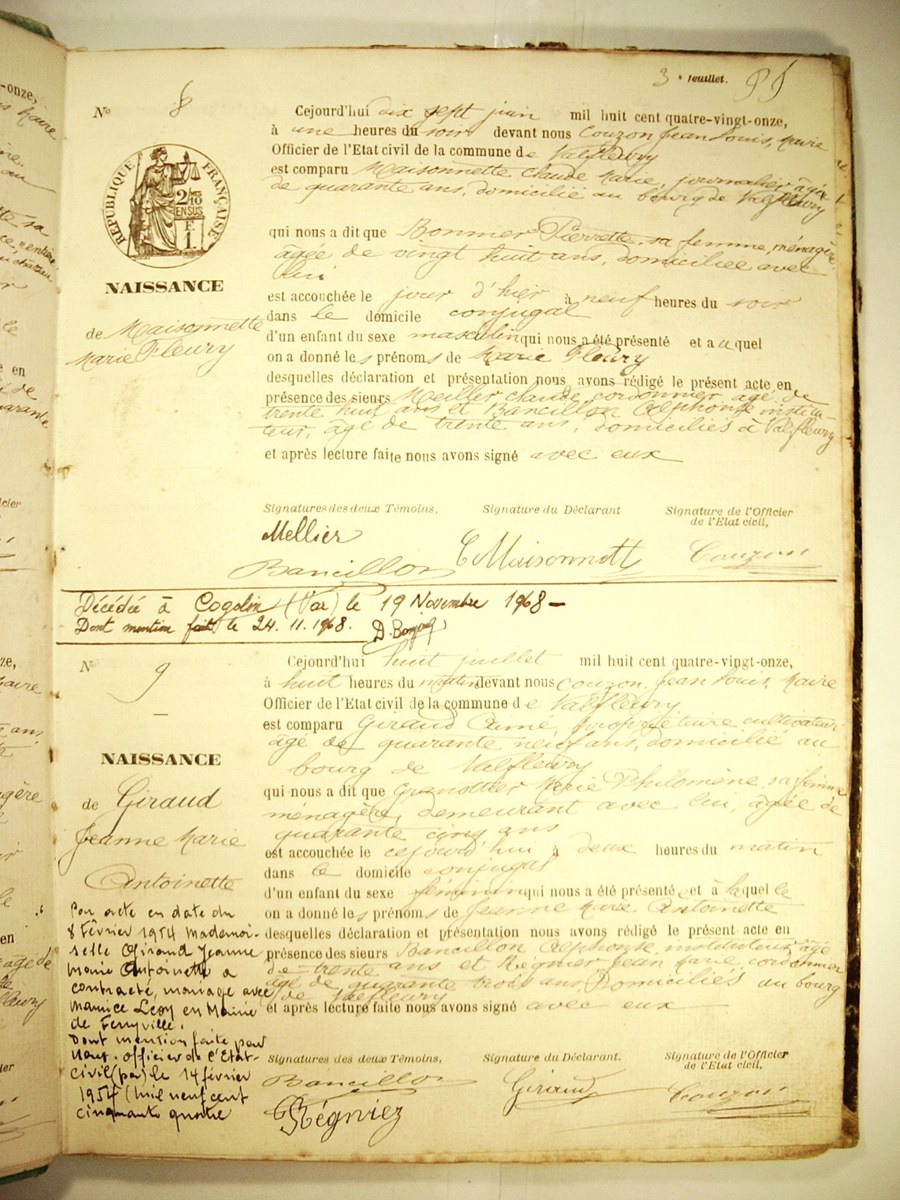 3e feuillet.
No 8
RÉPUBLIQUE FRANÇAISE
2/10 EN SUS
F. 1.
NAISSANCE
de Maisonnette
Marie Fleury
Cejourd'hui dix sept juin mil huit cent quatre-vingt-onze,
à une heures du soir devant nous Couzon Jean Louis, Maire
Officier de l'Etat civil de la commune de Valfleury
est comparu Maisonnette Claude Marie, journalier âgé
de quarante ans, domicilié au bourg de Valfleury
qui nous a dit que Bonmer Pierrette, sa femme, ménagère,
âgée de vingt huit ans, domiciliée avec
lui
est accouchée le jour d'hier à neuf heures du soir
dans le domicile conjugal
d'un enfant du sexe masculin qui nous a été présenté et auquel
on a donné les prénoms de Marie Fleury
desquelles déclaration et présentation nous avons rédigé le présent acte en
présence des sieurs Meiller Claude, cordonnier, âgé de
trente huit ans et Bancillon Alphonse institu-
teur, âgé de trente ans, domiciliés à Valfleury
et après lecture faite nous avons signé avec eux
Signatures des deux Témoins. Signature du Déclarant Signature de l'Officier
de l'Etat civil,
Mellier
Bancillon C Maisonnett Couzon
Décédée à Cogolin (Var) le 19 Novembre 1968 -
Dont mention faite le 24.11.1968.
No 9
NAISSANCE
de Giraud
Jeanne Marie
Antoinette
Cejourd'hui huit juillet mil huit cent quatre-vingt-onze,
à huit heures du matin devant nous Couzon, Jean Louis, Maire
Officier de l'Etat civil de la commune de Valfleury
est comparu Giraud Aimé, propriétaire cultivateur
âgé de quarante neuf ans, domicilié au
bourg de Valfleury
qui nous a dit que Marie Philomène, sa femme
ménagère, demeurant avec lui, âgée de
quarante cinq ans
est accouchée le cejourd'hui à deux heures du matin
dans le domicile conjugal
d'un enfant du sexe féminin qui nous a été présenté et à laquelle
on a donné les prénoms de Jeanne Marie Antoinette
desquelles déclaration et présentation nous avons rédigé le présent acte en
présence des sieurs Bancillon Alphonse, instituteur, âgé
de trente ans et Régnier Jean Marie, cordonnier
âgé de quarante trois ans, Domiciliés au bourg
de Valfleury
et après lecture faite nous avons signé avec eux
Signatures des deux Témoins, Signature du Déclarant. Signature de l'Officier
de l'Etat civil,
Bancillon Giraud Couzon
Régniez
Par acte en date du
8 Février 1954 Mademoi-
selle Giraud Jeanne
Marie Antoinette a
contracté mariage avec
Maurice Léon en Mairie
de Ferryville.
Dont mention faite par
Nous, officier de l'Etat-
civil le 14 février
1954 (mil neuf cent
cinquante quatre